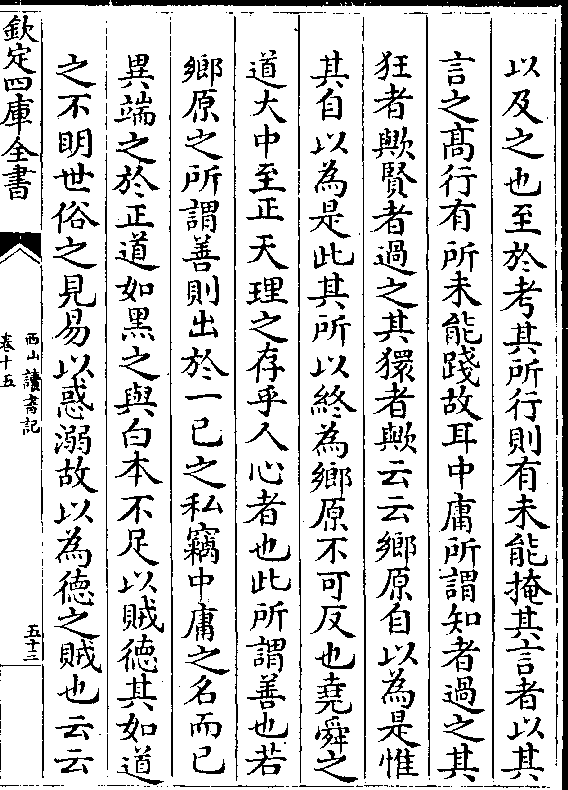 以及之也至於考其所行則有未能掩其言者以其
言之髙行有所未能踐故耳中庸所謂知者過之其
狂者歟賢者過之其獧者歟云云鄉原自以為是惟
其自以為是此其所以終為鄉原不可反也堯舜之
道大中至正天理之存乎人心者也此所謂善也若
鄉原之所謂善則出於一已之私竊中庸之名而已
異端之於正道如黑之與白本不足以賊德其如道
之不明世俗之見易以惑溺故以為德之賊也云云
欽定四庫全書
西山讀書記
卷十五
五十三